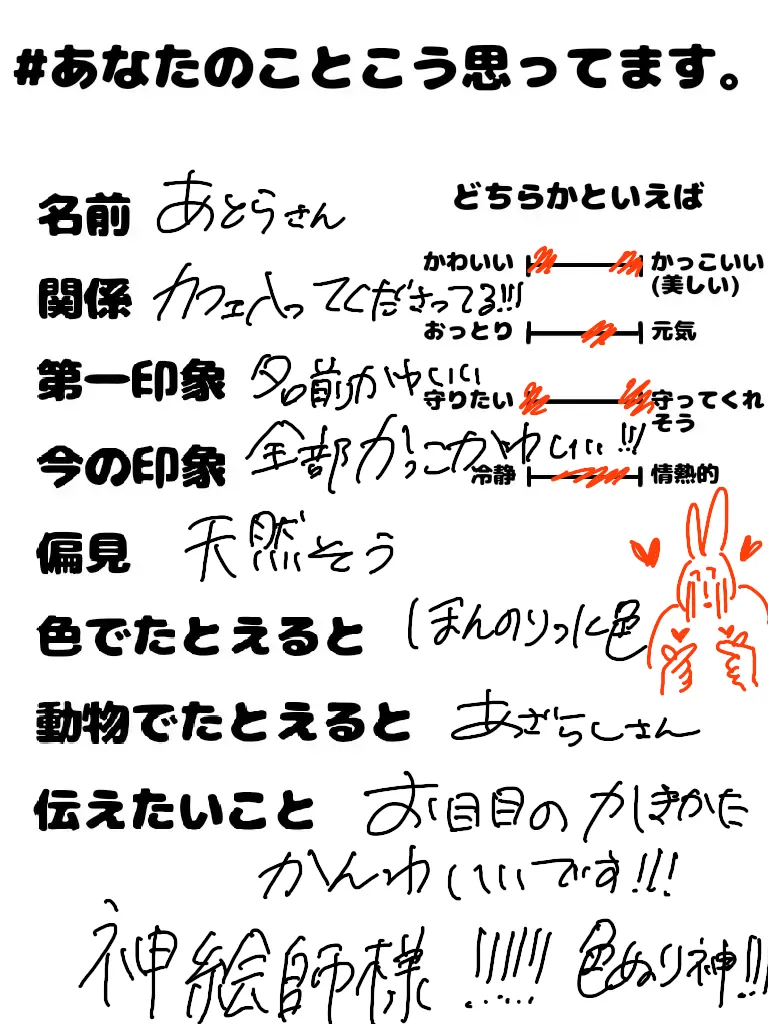 #あなたのことこう思ってます。
名前 あとらさん
関係 カフェ入ってくださってる!!!
第一印象 名前かわいい
今の印象 全部かっこかわいい!!!
偏見 天然そう
色でたとえると ほんのりっに色
動物でたとえると あざらしさん
伝えたいこと お目目のかきかた
かんわいいいです!!!
神絵師様!!!!!! 色ぬり神!!
どちらかといえば
かわいい かっこいい
(美しい)
おっとり 元気
守りたい 守ってくれ
そう
冷静 情熱的